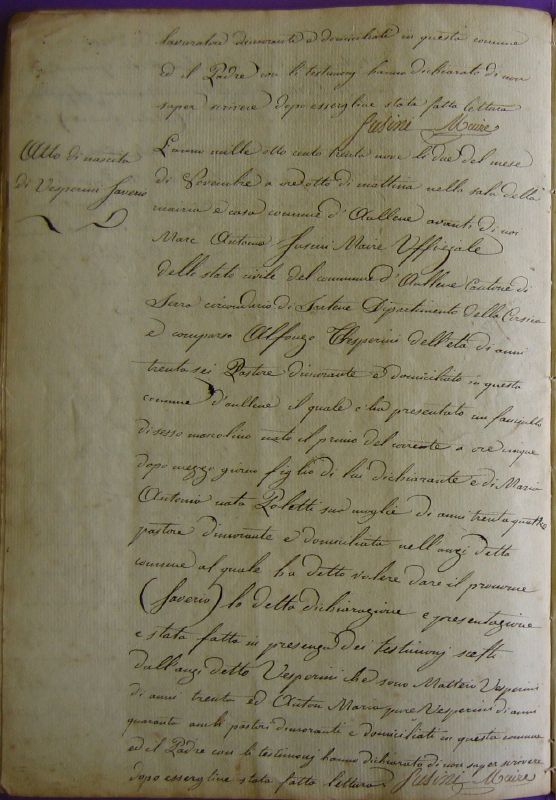 lavoratori dimoranti e domiciliati in questa comune
ed il Padre con li testimonj hanno dichiarato di non
saper scrivere dopo essergline stata fatta lettura
Susini Maire
Atto di nascita
di Vesperini Saverio
L'anno mille otto cento trenta nove li due del mese
di Novembre a ore otto di mattina nella sala della
mairia e casa comune d'Aullene avanti di noi
Marc Antonio Susini Maire Uffiziale
dello stato civile del comune d'Aullene Cantone di
Serra circondario di Sartene Dipartimento della Corsica
è comparso Alfonzo Vesperini dell'età di anni
trenta sei Pastore dimorante e domiciliato in questa
comune d'aullene il quale ci ha presentato un fanciullo
di sesso mascolino nato il primo del corrente a ore cinque
dopo mezzo giorno figlio di lui dichiarante e di Maria
Antonia nata Poletti sua moglie di anni trenta quattro
pastore dimorante e domiciliata nell'anzi detta
comune al quale ha detto volere dare il pronome
(Saverio) la detta dichiarazione e presentazione
e stata fatta in presenza dei testimonj scelti
dall'anzi detto Vesperini che sono Matteo Vesperini
di anni trenta ed Anton Maria pure Vesperini di anni
quaranta amb pastori dimoranti e domiciliati in questa comune
ed il Padre con li testimonj hanno dichiarato di non saper scrivere
dopo essergline stata fatta lettura Susini Maire